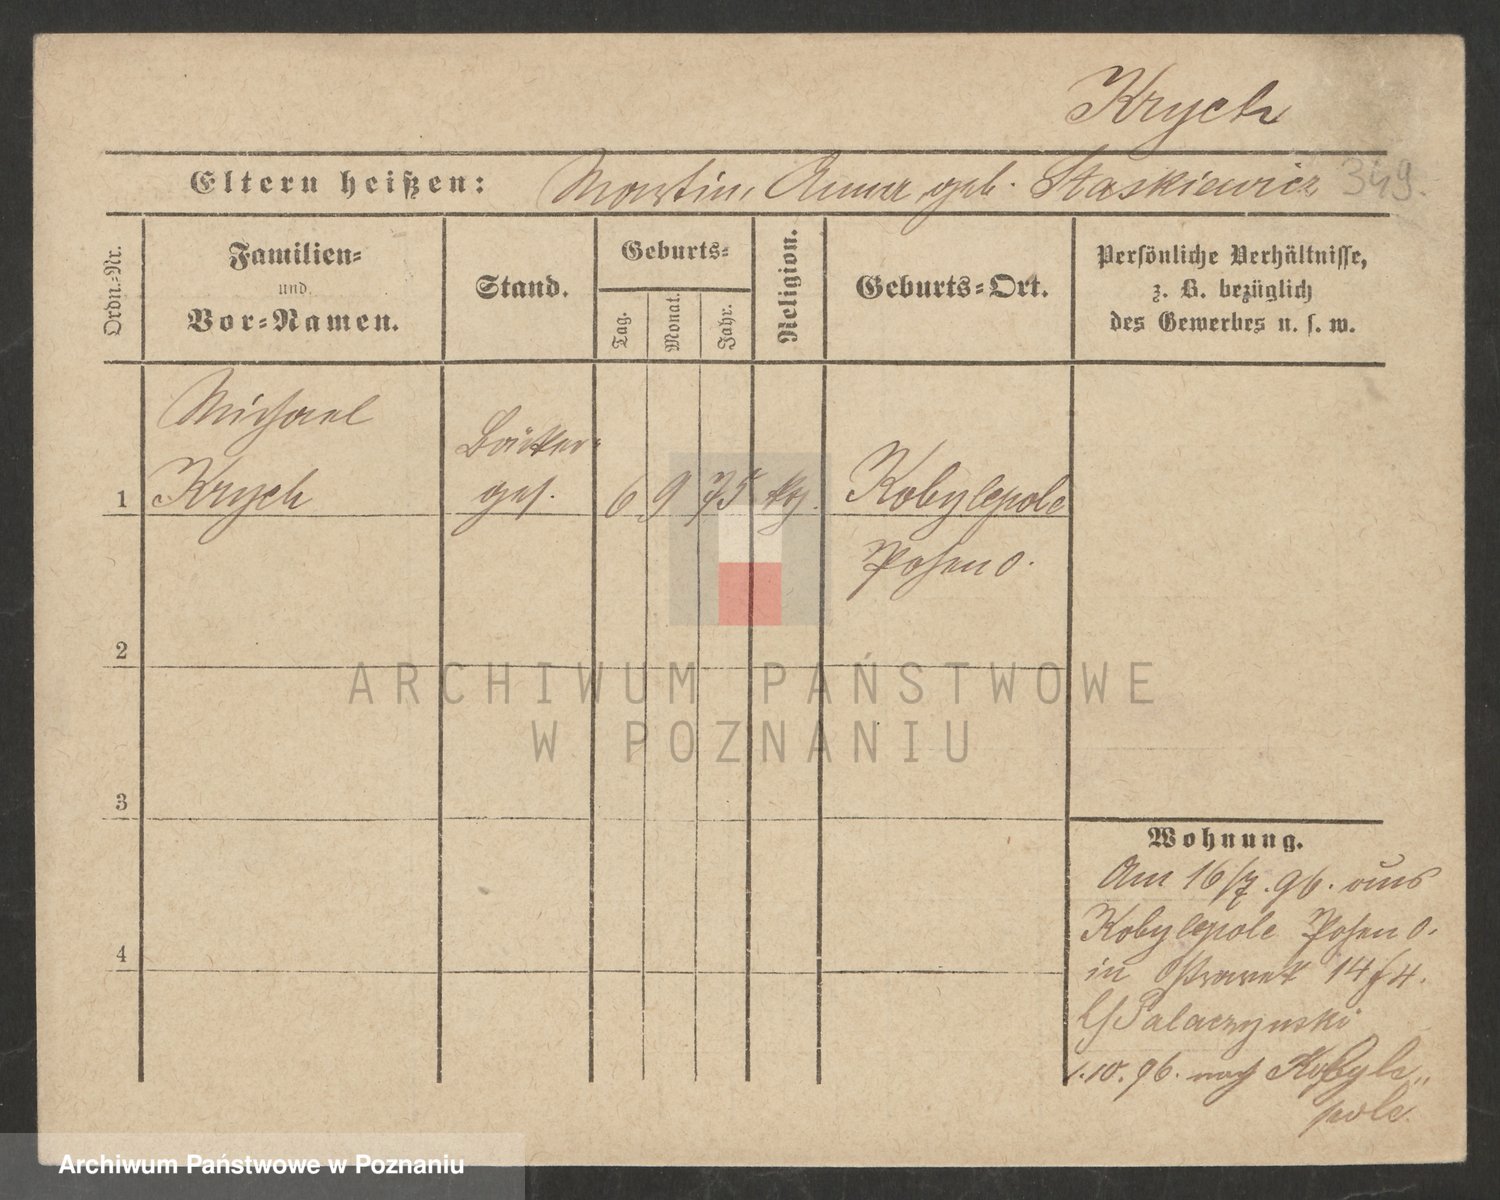 Krych
349.
Eltern heißen: Martin, Anna geb. Staskiewicz
Ordn.-Nr.
Familien-
und
Vor-Namen.
Stand.
Geburts-
Tag.
Monat.
Jahr.
Religion.
Geburts-Ort.
Persönliche Verhältnisse,
z. B. bezüglich
des Gewerbes u. s. w.
Michael
Bäcker-
1 Krych ges. 6 9 75 kg. Kobylepole
Posen O.
2
ARCHIWUM PAŃSTWOWE
W POZNANIU
3
Wohnung.
Am 16/7. 96. aus
Kobylepole Posen O.
4
in Ostrowek 14 f 4.
b/ Palaczynski
1.10.96. nach Kobyle-
pole.
Archiwum Państwowe w Poznaniu